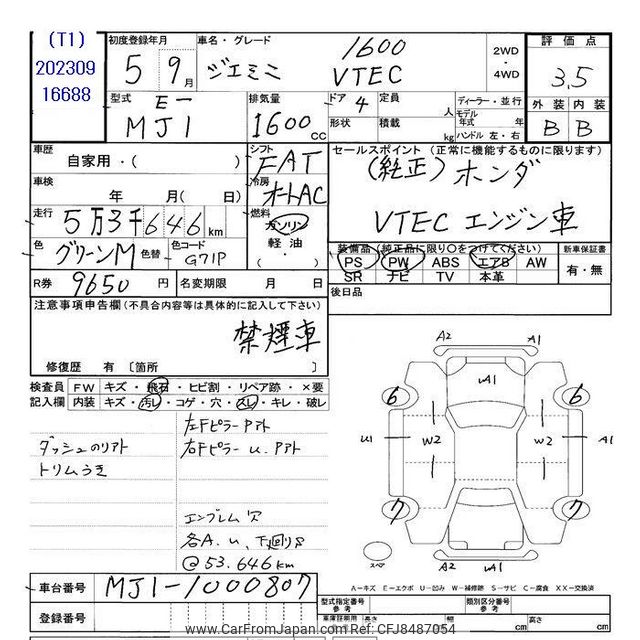 (T1)
202309
16688
初度登録年月
5 9月
車名・グレード
ジェミニ
1600
VTEC
2WD
・
4WD
評価点
3.5
型式
E-
MJ1
排気量
1600cc
ドア
4
定員
人
形状
積載
kg
ディーラー・並行
モデル年式
年
ハンドル 左・右
外装 内装
B B
車歴
自家用・( )
シフト
FAT
セールスポイント (正常に機能するものに限ります)
(純正)ホンダ
VTEC エンジン車
車検
年 月( 日)
冷房
オートAC
走行
5万3千646km
燃料
ガソリン
軽油・
( )
色
グリーンM
色替
色コード
G71P
装備品 (純正品に限り○をつけてください)
新車保証書
PS PW ABS エアB AW
有・無
SR ナビ TV 本革
R券
9650円
名変期限 月 日
後日品
注意事項申告欄(不具合内容等は具体的に記入して下さい)
禁煙車
修復歴 有 〔箇所 〕
検査員
記入欄
FW キズ・飛石・ヒビ割・リペア跡・×要
内装 キズ・汚レ・コゲ・穴・スレ・キレ・破レ
左Fピラー Pアト
ダッシュのリアト
右Fピラー u. Pアト
トリムうき
エンブレム穴
各A. u, 下廻りS
@53.646km
A2 A1
uA1
6 6
U1 W2 W2 A1
7 7
スペア
A2 uA1 A1
A-キズ E-エクボ U-凹み W-補修跡 S-サビ C-腐食 XX-交換済
車台番号
MJ1-1000807
型式指定番号
参考
類別区分番号
参考
登録番号
車庫証明用
参考
長さ
cm
幅
cm
高さ
cm
www.CarFromJapan.com Ref: CFJ8487054